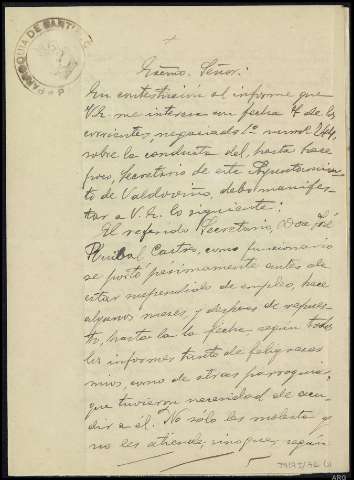 PARROQUIA DE SANTIAGO
+
Excmo. Señor:
En contestación al informe que
V.E. me interesa con fecha 4 de los
corrientes, negociado 1º num. 244,
sobre la conducta del, hasta hace
poco, Secretario de este Ayuntamien-
to de Valdoviño, debo manifes-
tar a V.E. lo siguiente:
El referido Secretario, Don José
Rubal Castro, como funcionario
se portó pésimamente antes de
estar suspendido de empleo, hace
algunos meses, y despues de repues-
to, hasta la la fecha segun todos
los informes tanto de feligreses
mios, como de otras parroquias,
que tuvieron necesidad de acu-
dir a él. No sólo les molesta y
no les atiende, sinó que, segun